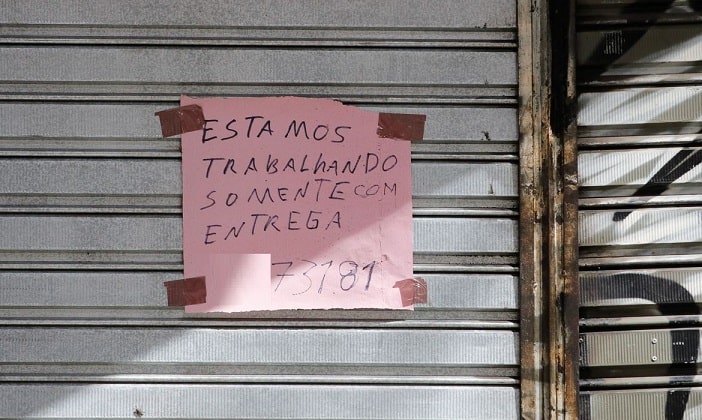 ESTAMOS
TRABALHANDO
SOMENTE COM
ENTREGA
73181